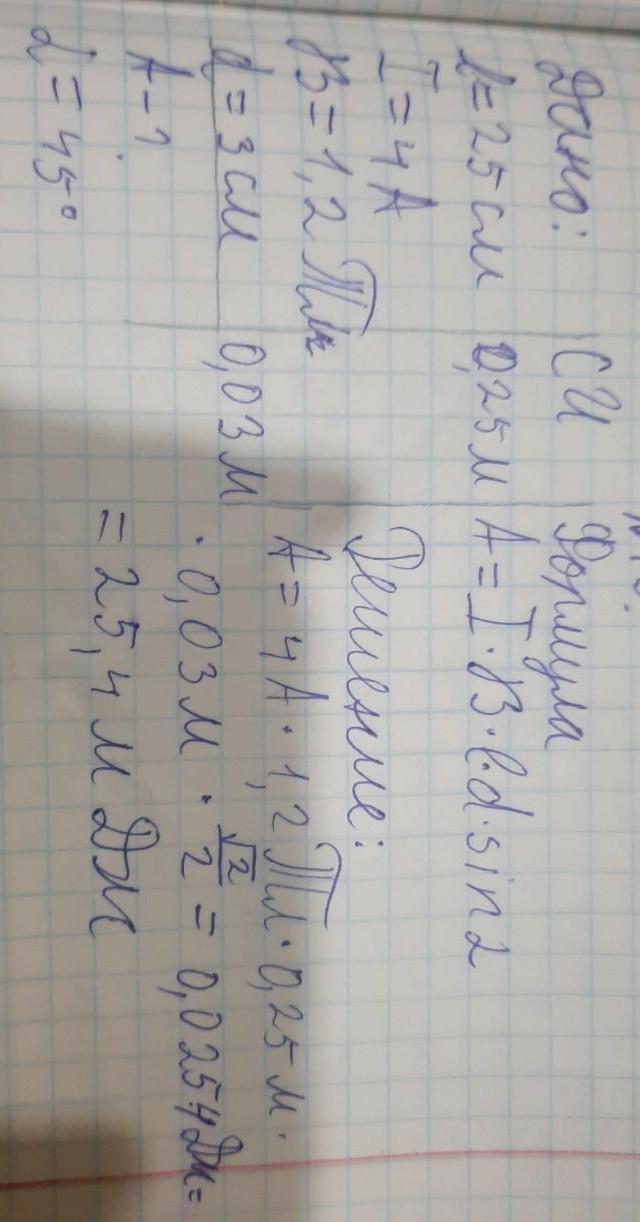 Дано:
l = 25 см
I = 4 А
В = 1,2 Тл
d = 3 см
А - ?
α = 45°
СИ
0,25 м
0,03 м
Формула
А = I · В · l · d · sin α
Решение:
А = 4 А · 1,2 Тл · 0,25 м ·
· 0,03 м · √2/2 = 0,0254 Дж =
= 25,4 м Дж